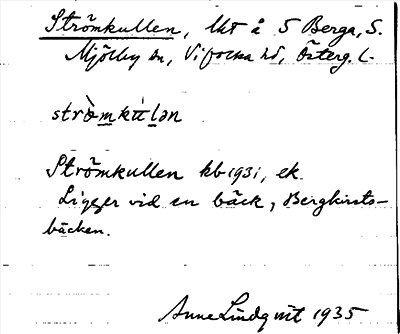 Strömkullen, lht å S Berga, S.
Mjölby sn, Vifolka hd, Österg. l.
strö̀mku̇lən
Strömkullen kb 1931, ek.
Ligger vid en bäck, Bergkirsts-
bäcken.
Anne Lindqvit 1935